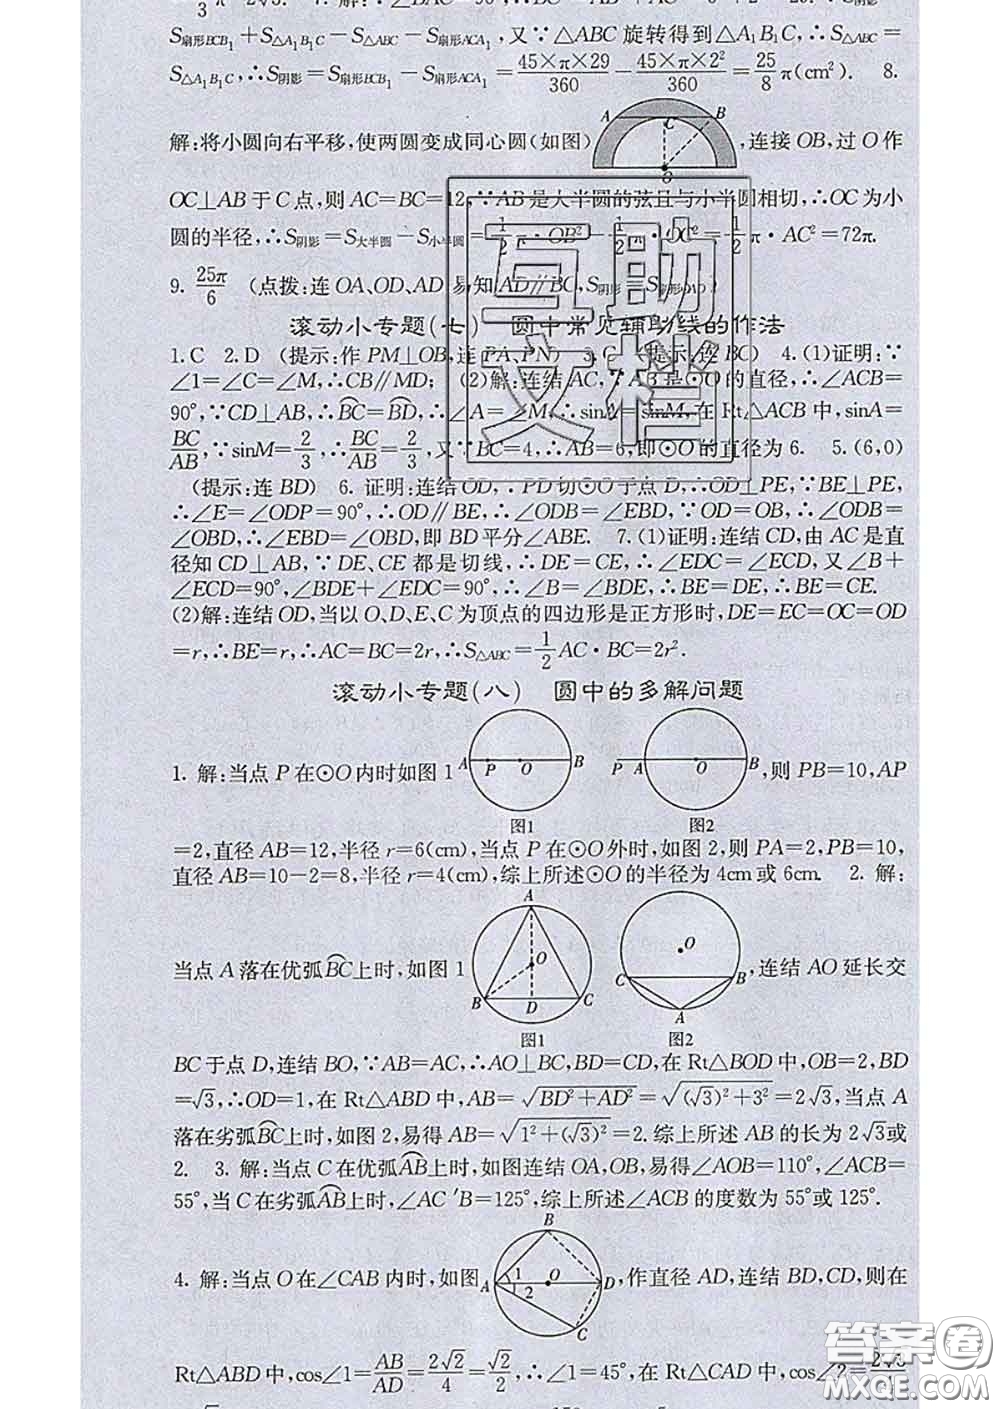 S扇形BCB₁+S△A₁B₁C−S△ABC−S扇形ACA₁,又∵△ABC旋转得到△A₁B₁C,∴S△ABC=
S△A₁B₁C,∴S阴影=S扇形BCB₁−S扇形ACA₁=45×π×29/360−45×π×2²/360=25/8π(cm²). 8.
A C B O
解:将小圆向右平移,使两圆变成同心圆(如图),连接OB,过O作
OC⊥AB于C点,则AC=BC=12,∵AB是大半圆的弦且与小半圆相切,∴OC为小
圆的半径,∴S阴影=S大半圆−S小半圆=1/2π·OB²−1/2π·OC²=1/2π·AC²=72π.
9. 25π/6 (点拨:连OA、OD、AD易知AD∥BC,S阴影=S扇形OAD)
滚动小专题(七) 圆中常见辅助线的作法
1.C 2.D (提示:作PM⊥OB,连PA、PN) 3.C (提示:连BC) 4.(1)证明:∵
∠1=∠C=∠M,∴CB∥MD; (2)解:连结AC,∵AB是⊙O的直径,∴∠ACB=
90°,∵CD⊥AB,∴BC⌒=BD⌒,∴∠A=∠M,∴sinA=sinM,在Rt△ACB中,sinA=
BC/AB,∵sinM=2/3,∴BC/AB=2/3,又∵BC=4,∴AB=6,即⊙O的直径为6. 5.(6,0)
(提示:连BD) 6. 证明:连结OD,∵PD切⊙O于点D,∴OD⊥PE,∵BE⊥PE,
∴∠E=∠ODP=90°,∴OD∥BE,∴∠ODB=∠EBD,∵OD=OB,∴∠ODB=
∠OBD,∴∠EBD=∠OBD,即BD平分∠ABE. 7.(1)证明:连结CD,由AC是直
径知CD⊥AB,∵DE、CE都是切线,∴DE=CE,∴∠EDC=∠ECD,又∠B+
∠ECD=90°,∠BDE+∠EDC=90°,∴∠B=∠BDE,∴BE=DE,∴BE=CE.
(2)解:连结OD,当以O、D、E、C为顶点的四边形是正方形时,DE=EC=OC=OD
=r,∴BE=r,∴AC=BC=2r,∴S△ABC=1/2AC·BC=2r².
滚动小专题(八) 圆中的多解问题
A P O B P A O B
1. 解:当点P在⊙O内时如图1,则PB=10,AP
图1 图2
=2,直径AB=12,半径r=6(cm),当点P在⊙O外时,如图2,则PA=2,PB=10,
直径AB=10−2=8,半径r=4(cm),综上所述⊙O的半径为4cm或6cm. 2. 解:
A O B D C O C B A
当点A落在优弧BC⌒上时,如图1,连结AO延长交
图1 图2
BC于点D,连结BO,∵AB=AC,∴AO⊥BC,BD=CD,在Rt△BOD中,OB=2,BD
=√3,∴OD=1,在Rt△ABD中,AB=√(BD²+AD²)=√((√3)²+3²)=2√3,当点A
落在劣弧BC⌒上时,如图2,易得AB=√(1²+(√3)²)=2.综上所述AB的长为2√3或
2. 3. 解:当点C在优弧AB⌒上时,如图连结OA,OB,易得∠AOB=110°,∠ACB=
55°,当C在劣弧AB⌒上时,∠AC′B=125°,综上所述∠ACB的度数为55°或125°.
B A 1 2 O D C
4. 解:当点O在∠CAB内时,如图,作直径AD,连结BD,CD,则在
Rt△ABD中,cos∠1=AB/AD=2√2/4=√2/2,∴∠1=45°,在Rt△CAD中,cos∠2=2√3
互助文档
答案圈
MXQE.COM